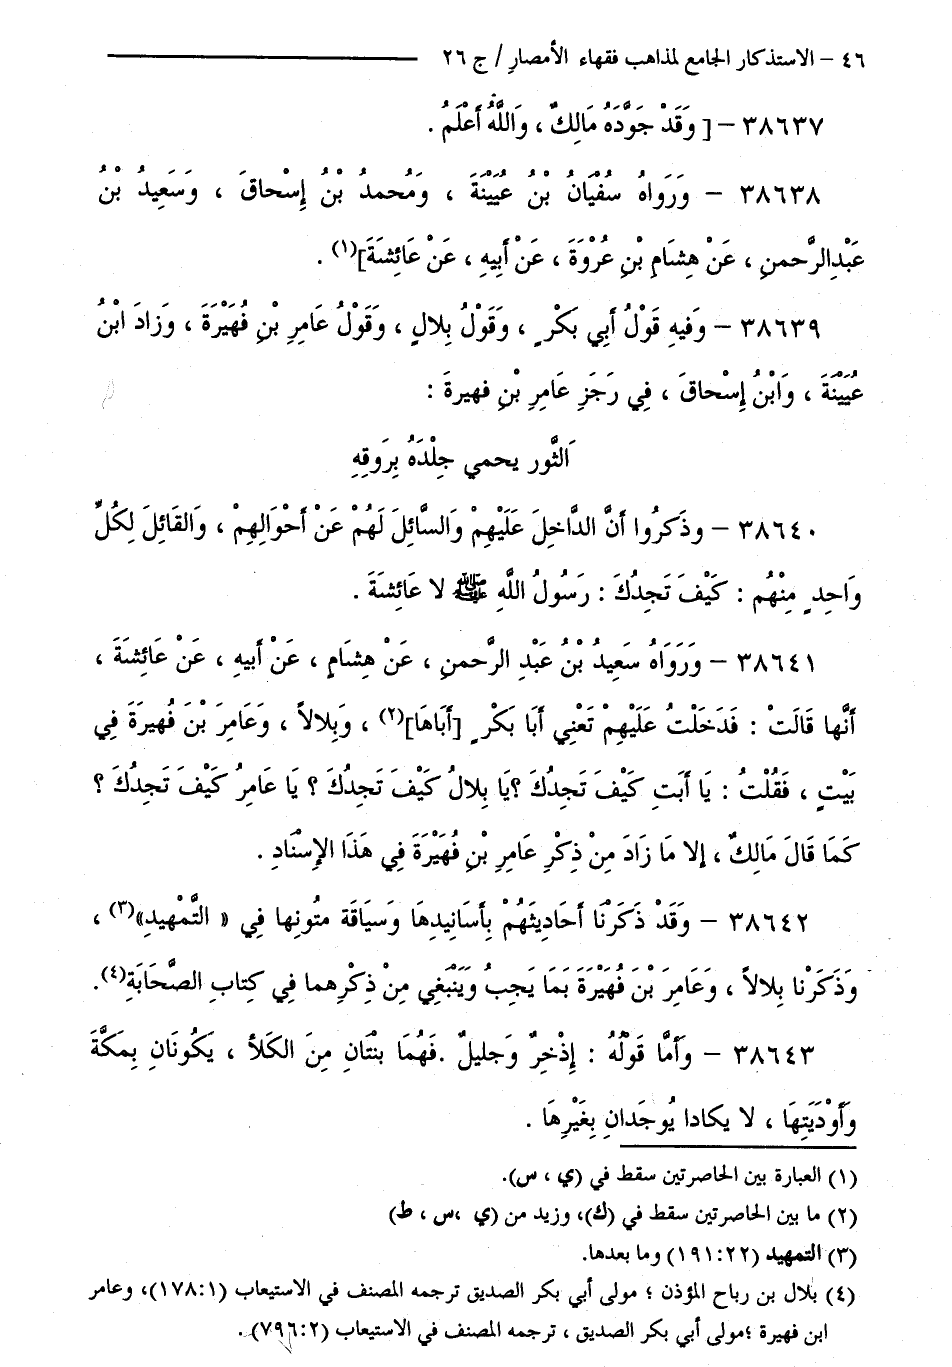 ٤٦ – الاستذكار الجامع لمذاهب فقهاء الأمصارِ / ج ٢٦
٣٨٦٣٧ – [ وَقَدْ جَوَّدَهُ مَالِكٌ ، وَاللَّهُ أَعْلَمُ .
٣٨٦٣٨ – وَرَوَاهُ سُفْيَانُ بْنُ عُيَيْنَةَ ، وَمُحمدُ بْنُ إِسْحاقَ ، وَسَعِيدُ بْنُ
عَبْدِالرَّحمنِ ، عَنْ هِشَامِ بْنِ عُرْوَةَ ، عَنْ أَبِيهِ ، عَنْ عَائِشَةَ](١) .
٣٨٦٣٩ – وَفيهِ قَوْلُ أَبِي بَكْرٍ ، وَقَوْلُ بِلالٍ ، وَقَوْلُ عَامِرِ بْنِ فُهَيْرَةَ ، وَزادَ ابْنُ
عُيَيْنَةَ ، وَابْنُ إِسْحاقَ ، فِي رَجَزِ عَامِرِ بْنِ فهيرةَ :
اَلثَّور يحمي جِلْدَهُ بِرَوقِهِ
٣٨٦٤٠ – وذَكَرُوا أَنَّ الدَّاخِلَ عَلَيْهِمْ وَالسَّائِلَ لَهُمْ عَنْ أَحْوَالِهِمْ ، وَالقَائِلَ لِكُلِّ
وَاحِدٍ مِنْهُم : كَيْفَ تَجِدُكَ : رَسُولُ اللَّهِ ﷺ لا عَائِشَةَ .
٣٨٦٤١ – وَرَوَاهُ سَعِيدُ بْنُ عَبْدِ الرَّحمنِ ، عَنْ هِشَامٍ ، عَنْ أَبيهِ ، عَنْ عائِشَةَ ،
أَنَّها قَالَتْ : فَدَخَلْتُ عَلَيْهِمْ تَعْنِي أَبَا بَكْرٍ [أَبَاهَا](٢) ، وَبِلالاً ، وَعَامِرَ بْنَ فُهيرَةَ فِي
بَيْتٍ ، فَقُلْتُ : يَا أَبَتِ كَيْفَ تَجدُكَ ؟يَا بِلالُ كَيْفَ تَجدُكَ ؟ يَا عَامِرُ كَيْفَ تَجدُكَ ؟
كَمَا قَالَ مَالِكٌ ، إلا مَا زَادَ مِنْ ذِكْرِ عَامِرِ بْنِ فُهَيْرَةَ فِي هَذَا الإِسْنَادِ .
٣٨٦٤٢ – وَقَدْ ذَكَرْنَا أَحَادِيثَهُمْ بِأَسَانِيدِهَا وَسيَاقَة متُونِها فِي « التَّمْهِيدِ»(٣) ،
وَذَكَرْنا بِلالاً ، وَعَامِرَ بْنَ فُهَيْرَةَ بَمَا يَجِبُ وَيَنْبَغِي مِنْ ذِكْرِهما فِي كِتابِ الصَّحَابَةِ(٤).
٣٨٦٤٣ – وَأَمَّا قَوْلُهُ : إِذْخِرٌ وَجليلٌ .فَهُمَا نبْتَان مِنَ الكَلأ ، يَكُونَانِ بِمَكَّةَ
وَأَوْدَيَتِهَا ، لا يكادا يُوجَدانِ بِغَيْرِهَا .
(١) العبارة بين الحاصرتين سقط في (ي ، س).
(٢) ما بين الحاصرتين سقط في (ك)، وزيد من (ي ،س ، ط)
(٣) التمهيد (٢٢: ١٩١) وما بعدها.
(٤) بلال بن رباح المؤذن ؛ مولى أبي بكر الصديق ترجمه المصنف في الاستيعاب (١: ١٧٨)، وعامر
ابن فهيرة ؛مولى أبي بكر الصديق ، ترجمه المصنف في الاستيعاب (٢: ٧٩٦).